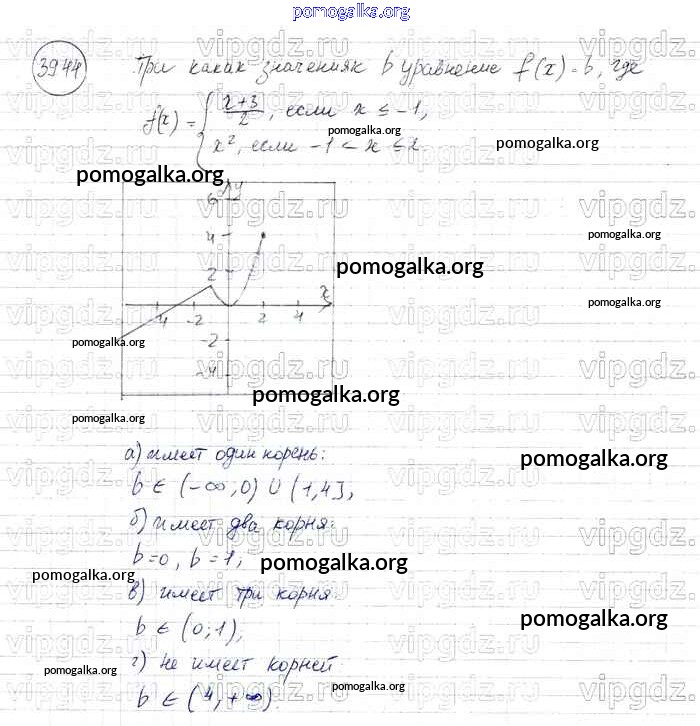 pomogalka.org
vipgdz.ru vipgdz.ru vipgdz.ru vipgdz.ru
3944 При каких значениях b уравнение f(x)=b, где
f(x) = { x+3/2, если x ≤ -1,
pomogalka.org
x², если -1 < x ≤ 2.
pomogalka.org
pomogalka.org
vipgdz.ru vipgdz.ru vipgdz.ru vipgdz.ru
6 y
4
pomogalka.org
pomogalka.org
2
x
-4 -2 2 4
pomogalka.org
-2
pomogalka.org
-4
pomogalka.org
pomogalka.org
а) имеет один корень:
pomogalka.org
b ∈ (-∞,0) ∪ (1,4],
б) имеет два корня:
b=0, b=1;
pomogalka.org
pomogalka.org
в) имеет три корня:
pomogalka.org
b ∈ (0;1),
г) не имеет корней
pomogalka.org
b ∈ (4,+∞)
pomogalka.org